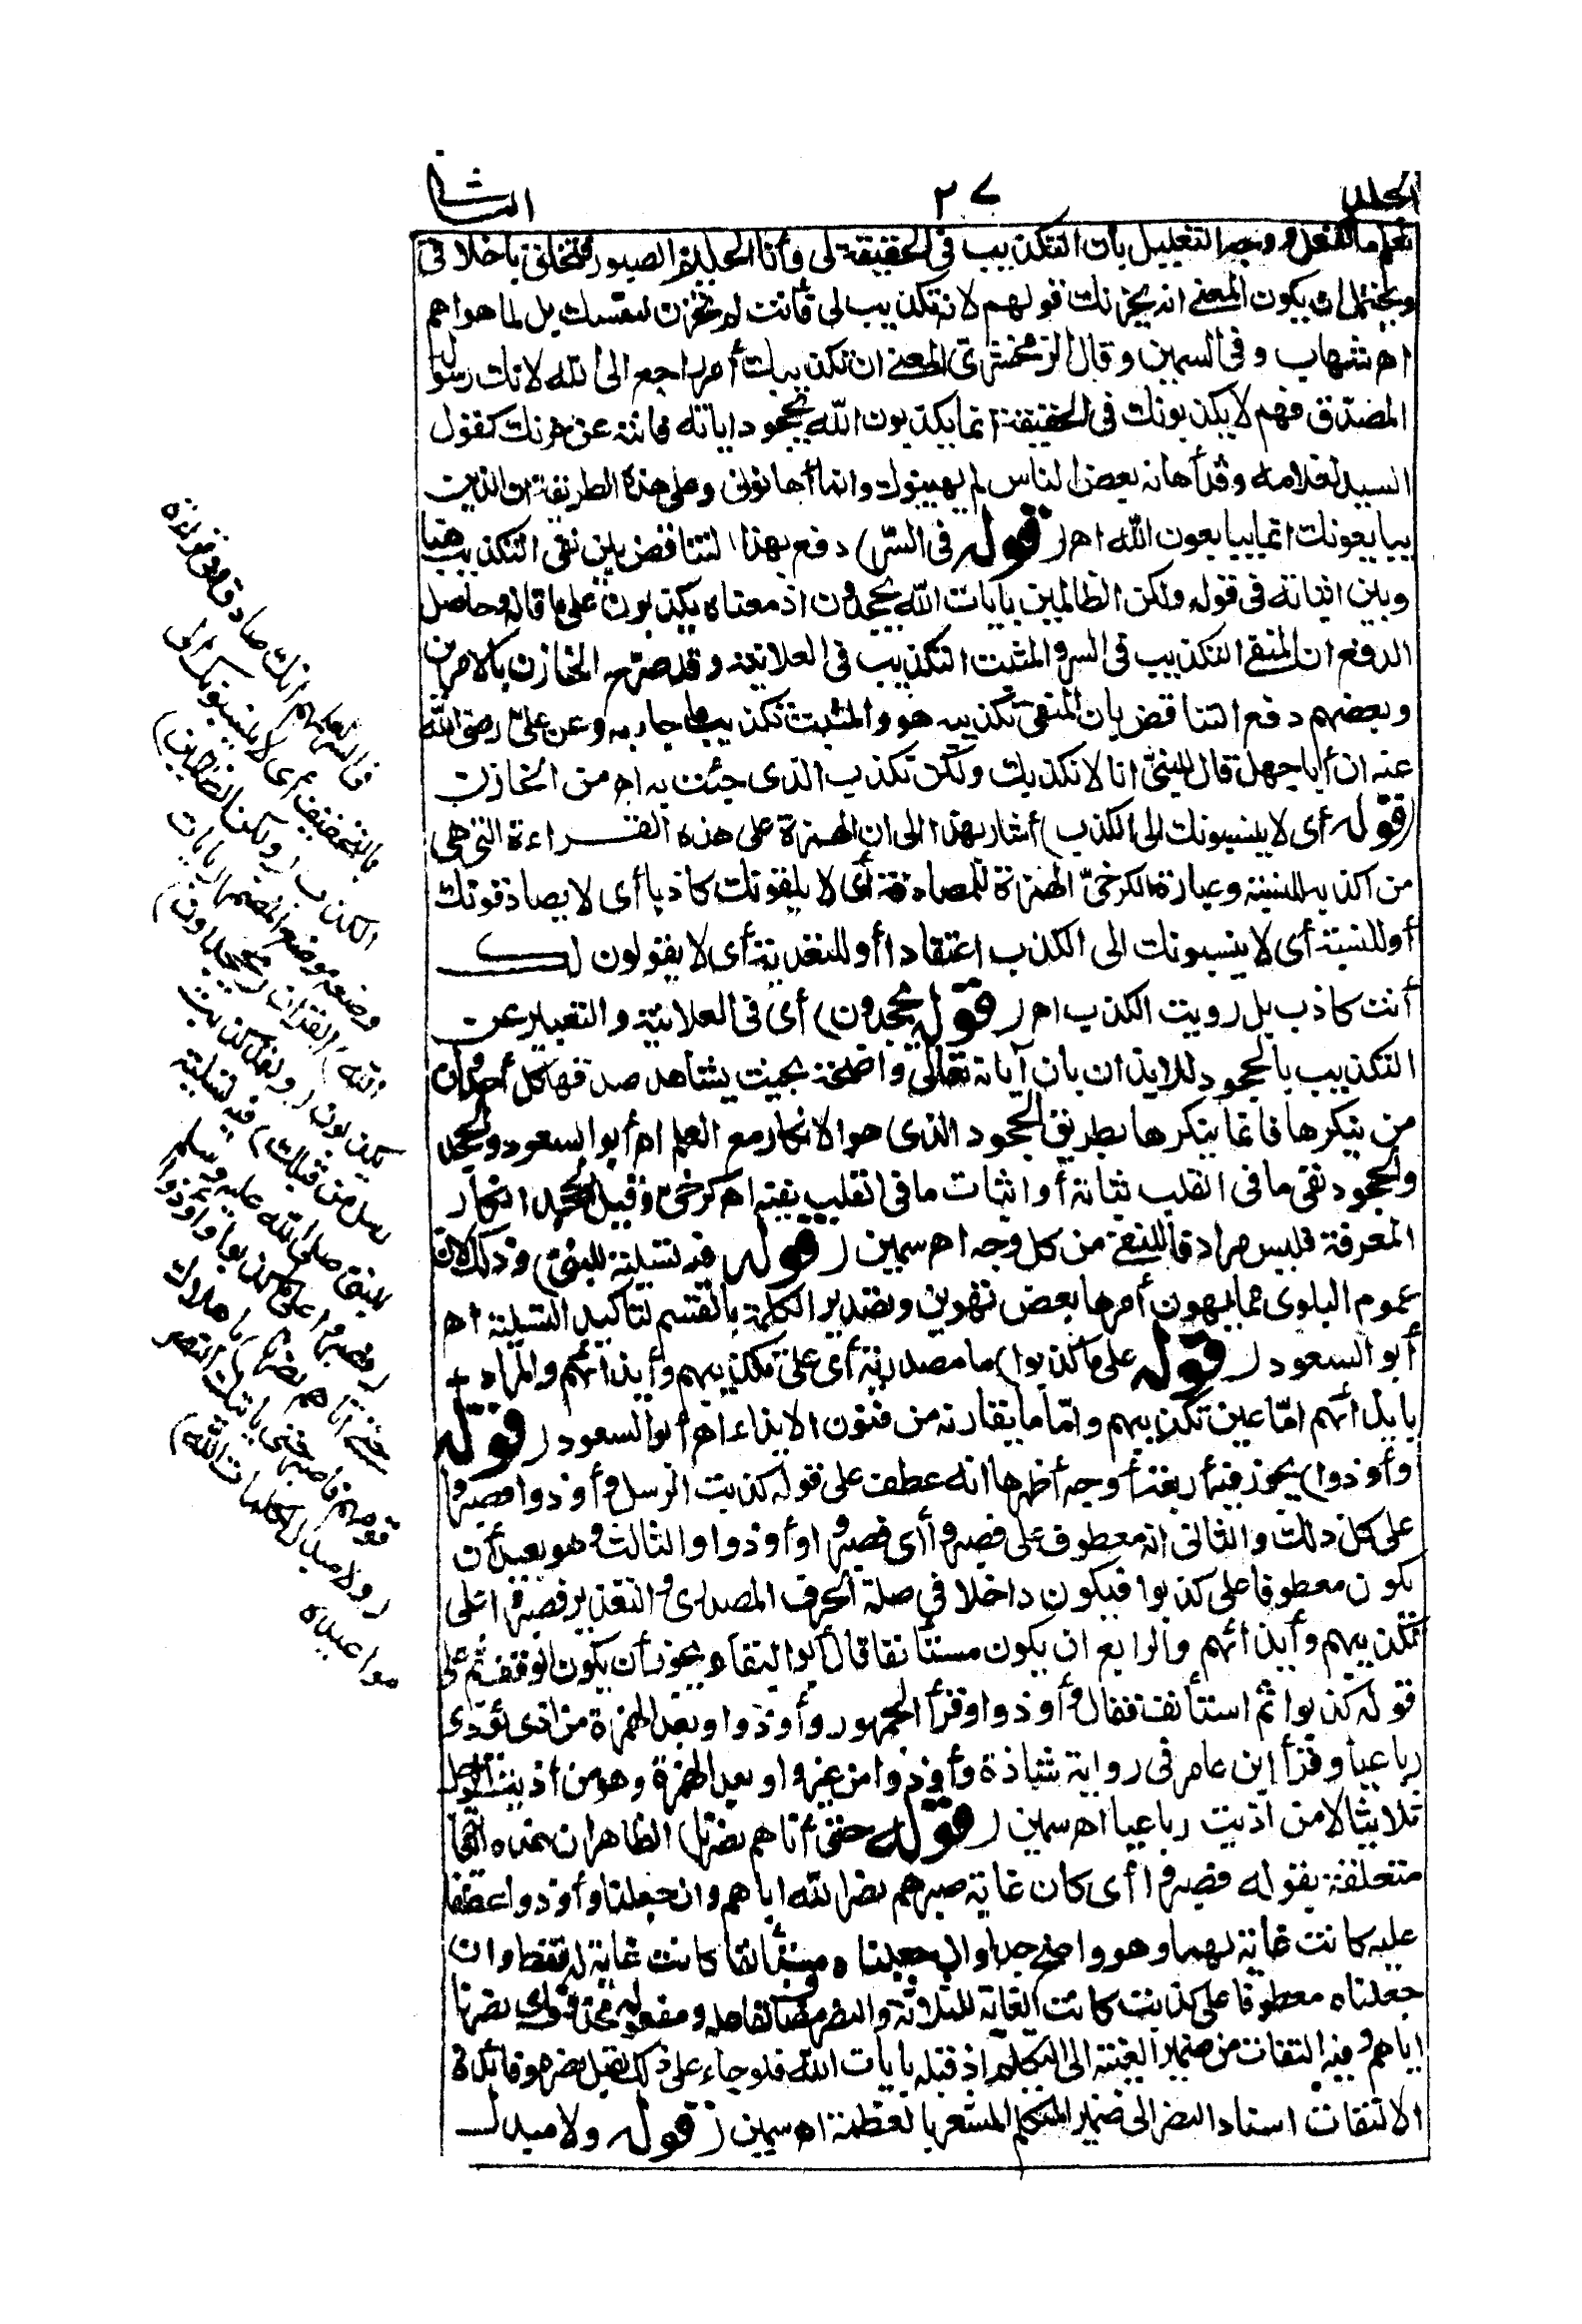 الجلد
٢٧
الثاني
نعلم ما تفعل ووجه التعليل بأن التكذيب في الحقيقة لي وأنا الحليم الصبور فتخلق بأخلاقي
ويحتمل ان يكون المعنى انه يحزنك قولهم لانه تكذيب لي فأنت لم تحزن لنفسك بل لما هو اهم
اه شهاب وفي السمين وقال الزمخشري المعنى ان تكذيبك أمر راجع الى الله لانك رسوله
المصدق فهم لا يكذبونك في الحقيقة انما يكذبون الله بجحود اياته فانته عن حزنك كقول
السيد لغلامه وقد أهانه بعض الناس لم يهينوك وانما أهانوني وعلى هذه الطريقة ان الذين
يبايعونك انما يبايعون الله اه (قوله في السر) دفع بهذا التناقض بين نفي التكذيب هنا
وبين اثباته في قوله ولكن الظالمين بآيات الله يجحدون اذ معناه يكذبون على ما قاله وحاصل
الدفع ان المنفي التكذيب في السر والمثبت التكذيب في العلانية وقد صرح الخازن بالامرين
وبعضهم دفع التناقض بان المنفي تكذيبه هو والمثبت تكذيب ما جاء به وعن علي رضي الله
عنه ان أبا جهل قال للنبي انا لا نكذبك ولكن نكذب الذي جئت به اه من الخازن
(قوله أي لا ينسبونك الى الكذب) أشار بهذا الى ان الهمزة على هذه القراءة التي هي
من اكذبه للنسبة وعبارة الكرخي الهمزة للمصادفة أي لا يلفونك كاذبا أي لا يصادفونك
أو للنسبة أي لا ينسبونك الى الكذب اعتقادا أو للتعدية أي لا يقولون لك
أنت كاذب بل رويت الكذب اه (قوله يجحدون) أي في العلانية والتعبير عن
التكذيب بالجحود للايذان بان آياته تعالى واضحة بحيث يشاهد صدقها كل أحد وان
من ينكرها فانما ينكرها بطريق الجحود الذي هو الانكار مع العلم اه أبو السعود والجحد
والجحود نفي ما في القلب ثباته أو اثبات ما في القلب نفيه اه كرخي وقيل الجحد انكار
المعرفة فليس مرادفا للنفي من كل وجه اه سمين (قوله فيه تسلية للنبي) وذلك لان
عموم البلوى مما يهون أمرها بعض تهوين وتصدير الكلمة بالقسم لتأكيد التسلية اه
أبو السعود (قوله على ما كذبوا) ما مصدرية أي على تكذيبهم وأيذائهم والمراد
بايذائهم اما عين تكذيبهم واما ما يقارنه من فنون الايذاء اه أبو السعود (قوله
وأوذوا) يجوز فيه أربعة أوجه أظهرها انه عطف على قوله كذبت الرسل وأوذوا فصبروا
على كل ذلك والثاني انه معطوف على فصبروا أي فصبروا وأوذوا والثالث وهو بعيد أن
يكون معطوفا على كذبوا فيكون داخلا في صلة الحرف المصدري والتقدير فصبروا على
تكذيبهم وأيذائهم والرابع ان يكون مستأنفا قال أبو البقاء ويجوز أن يكون الوقف تم على
قوله كذبوا ثم استأنف فقال وأوذوا وقرأ الجمهور وأوذوا بواو بعد الهمزة من اذى يؤذي
رباعيا وقرأ ابن عامر في رواية شاذة وأذوا من غير واو بعد الهمزة وهو من أذيت الرجل
ثلاثيا لا من آذيت رباعيا اه سمين (قوله حتى أتاهم نصرنا) الظاهر ان هذه الغاية
متعلقة بقوله فصبروا أي كان غاية صبرهم نصر الله اياهم وان جعلنا وأوذوا عطفا
عليه كانت غاية لهما وهو واضح جدا وان جعلناه مستأنفا كانت غاية له فقط وان
جعلناه معطوفا على كذبت كانت الغاية للثلاثة والنصر مضاف لفاعله ومفعوله محذوف أي نصرنا
اياهم وفيه التفات من ضمير الغيبة الى التكلم اذ قبله بايات الله فلو جاء على ذلك لقيل نصره وفائدة
الالتفات اسناد النصر الى ضمير المتكلم المشعر بالعظمة اه سمين (قوله ولا مبدل
في السر لعلمهم انك صادق وفي قراءة
بالتخفيف أي لا ينسبونك الى
الكذب (ولكن الظالمين)
وضعه موضع المضمر (بآيات
الله) القرآن (يجحدون)
يكذبون (ولقد كذبت
رسل من قبلك) فيه تسلية
للنبي صلى الله عليه وسلم
(فصبروا على ما كذبوا وأوذوا
حتى أتاهم نصرنا) باهلاك
قومهم فاصبر حتى يأتيك النصر
(ولا مبدل لكلمات الله)
مواعيده